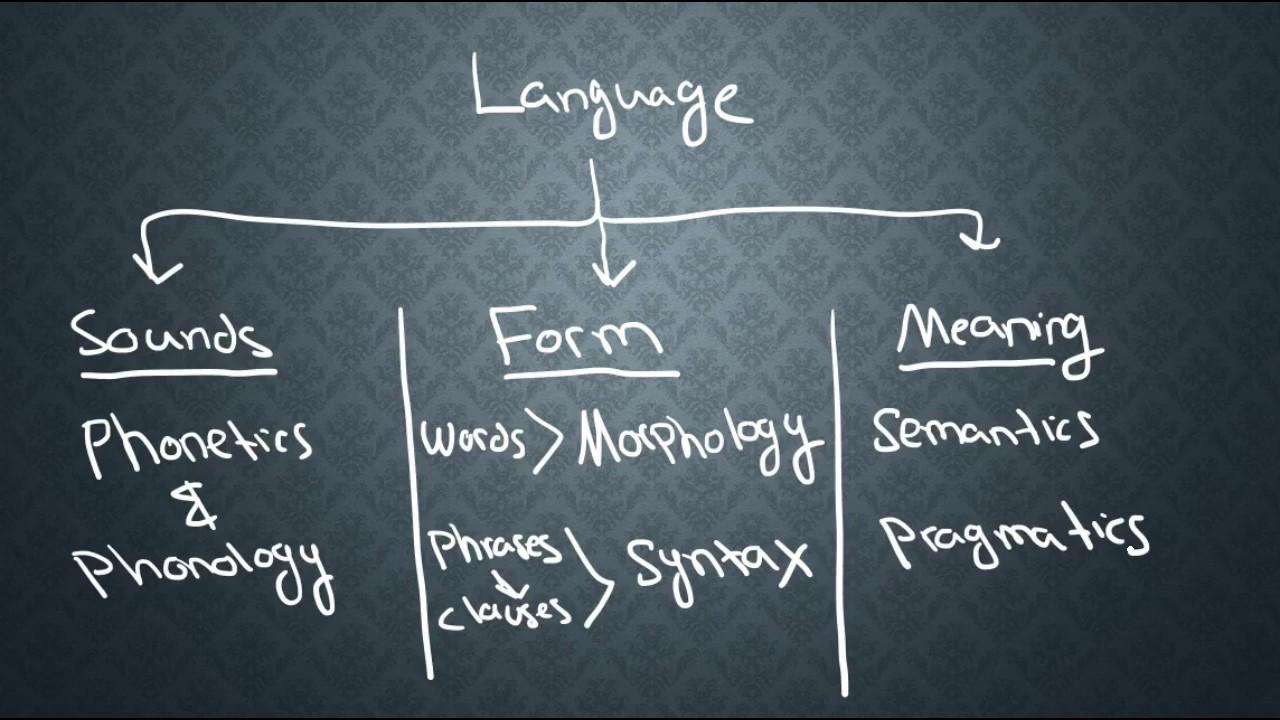 Language
Sounds
Phonetics
&
Phonology
Form
Words > Morphology
Phrases
clauses > Syntax
Meaning
Semantics
Pragmatics